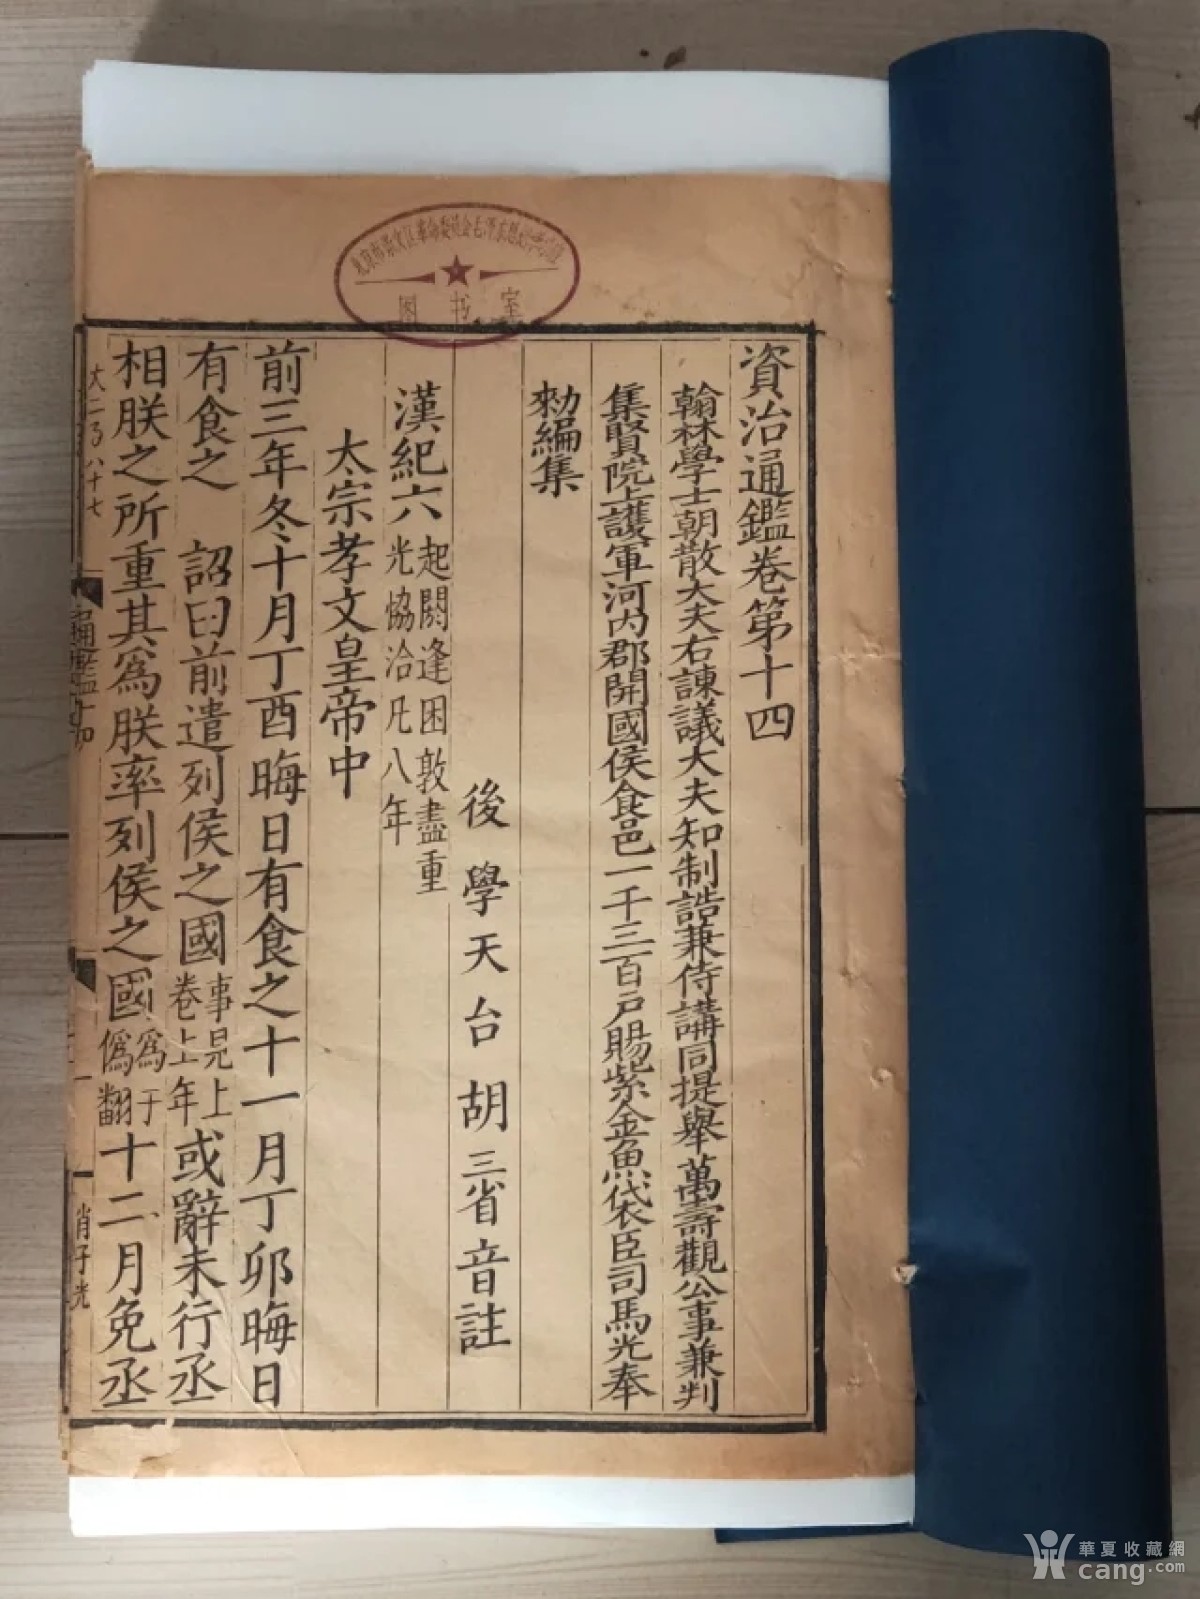 資治通鑑卷第十四
翰林學士朝散大夫右諫議大夫知制誥兼侍講同提舉萬壽觀公事兼判
集賢院上護軍河內郡開國侯食邑一千三百戸賜紫金魚袋臣司馬光奉
勑編集
後學天台胡三省音註
漢紀六 起閼逢困敦盡重
光協洽凡八年
太宗孝文皇帝中
前三年冬十月丁酉晦日有食之十一月丁卯晦日
有食之 詔曰前遣列侯之國 事見上
卷上年 或辭未行丞
相朕之所重其爲朕率列侯之國 爲于
僞翻 十二月免丞
大二百八十七
通鑑十四
肖子光
北京市崇文区革命委员会毛泽东思想
图书室
華夏收藏網
cang.com